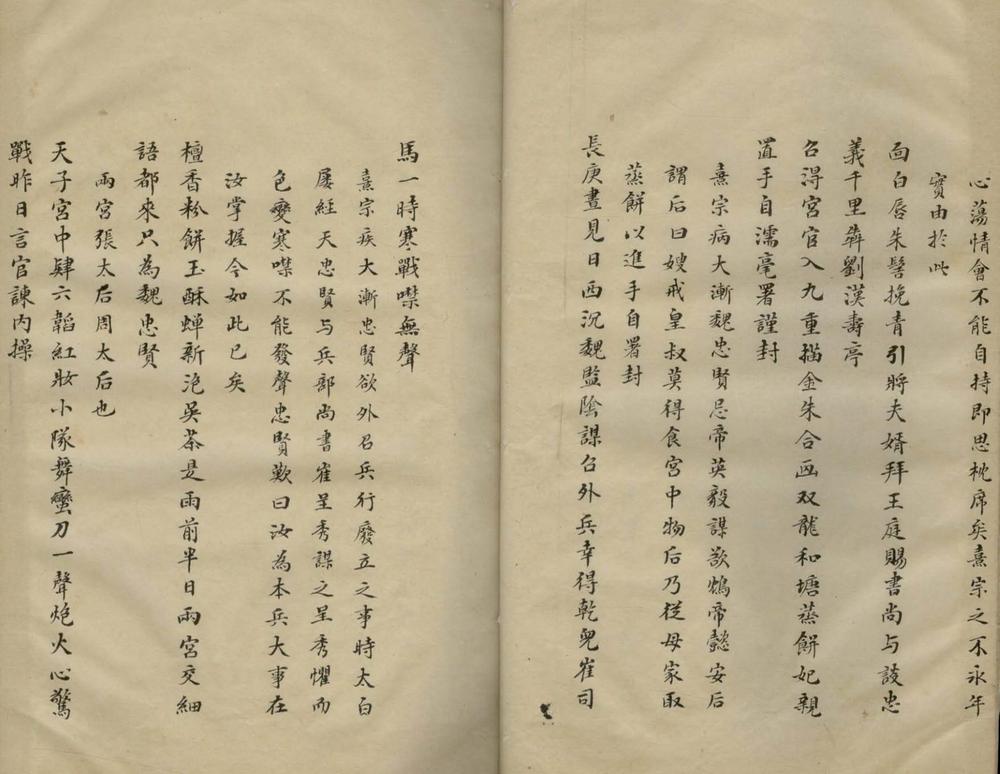 心蕩情會不能自持即思枕席矣熹宗之不永年
實由於此
面白唇朱髻挽青引將夫婿拜王庭賜書尚与談忠
義千里犇劉漢壽亭
召淂宮官入九重描金朱合画双龍和塘蒸餅妃親
置手自濡毫署謹封
熹宗病大漸魏忠賢忌帝英毅謀欲鴆帝懿安后
謂后曰嫂戒皇叔莫得食宮中物后乃從母家取
蒸餅以進手自署封
長庚晝見日西沉魏監陰謀召外兵幸得乾兒崔司
馬一時寒戰噤無聲
熹宗疾大漸忠賢欲外召兵行廢立之事時太白
屡經天忠賢与兵部尚書崔呈秀謀之呈秀懼而
色變寒噤不能發聲忠賢歎曰汝為本兵大事在
汝掌握今如此已矣
檀香粉餅玉酥蟬新泡吳茶是雨前半日兩宮交細
語都來只為魏忠賢
兩宮張太后周太后也
天子宮中肆六韜紅妝小隊舞蠻刀一聲炮火心驚
戰昨日言官諫内操